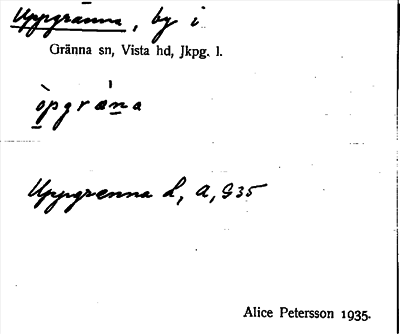 Uppgränna, by i
Gränna sn, Vista hd, Jkpg. l.
òpgrána
Uppgrenna d, a, G35
Alice Petersson 1935.